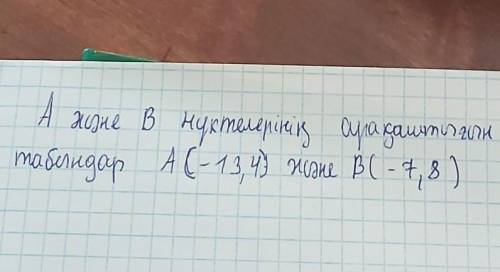 А және В нүктелерінің арақашықтығын
табыңдар А(-13,4) және В(-7,8)